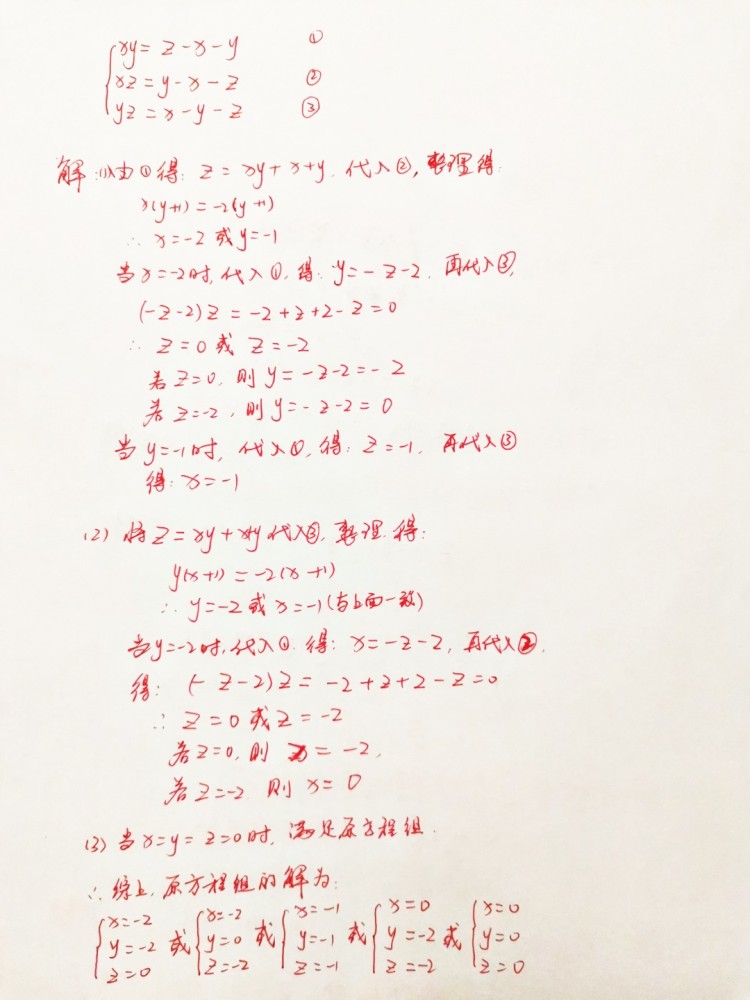 xy = z - x - y ①
xz = y - x - z ②
yz = x - y - z ③
解:(1)由①得: z = xy + x + y. 代入②, 整理得:
x(y+1) = -2(y+1)
∴ x = -2 或 y = -1
当 x = -2 时, 代入①, 得: y = - z - 2. 再代入③,
(-z-2)z = -2 + z + 2 - z = 0
∴ z = 0 或 z = -2
若 z = 0, 则 y = - z - 2 = - 2
若 z = -2, 则 y = - z - 2 = 0
当 y = -1 时, 代入①, 得: z = -1, 再代入③
得: x = -1
(2) 将 z = xy + x + y 代入③, 整理得:
y(x+1) = -2(x+1)
∴ y = -2 或 x = -1 (与上面一致)
当 y = -2 时, 代入①. 得: x = - z - 2, 再代入②.
得: (- z - 2)z = -2 + z + 2 - z = 0
∴ z = 0 或 z = -2
若 z = 0, 则 x = -2,
若 z = -2 则 x = 0
(3) 当 x = y = z = 0 时, 满足原方程组.
∴ 综上, 原方程组的解为:
x = -2 x = -2 x = -1 x = 0 x = 0
y = -2 或 y = 0 或 y = -1 或 y = -2 或 y = 0
z = 0 z = -2 z = -1 z = -2 z = 0